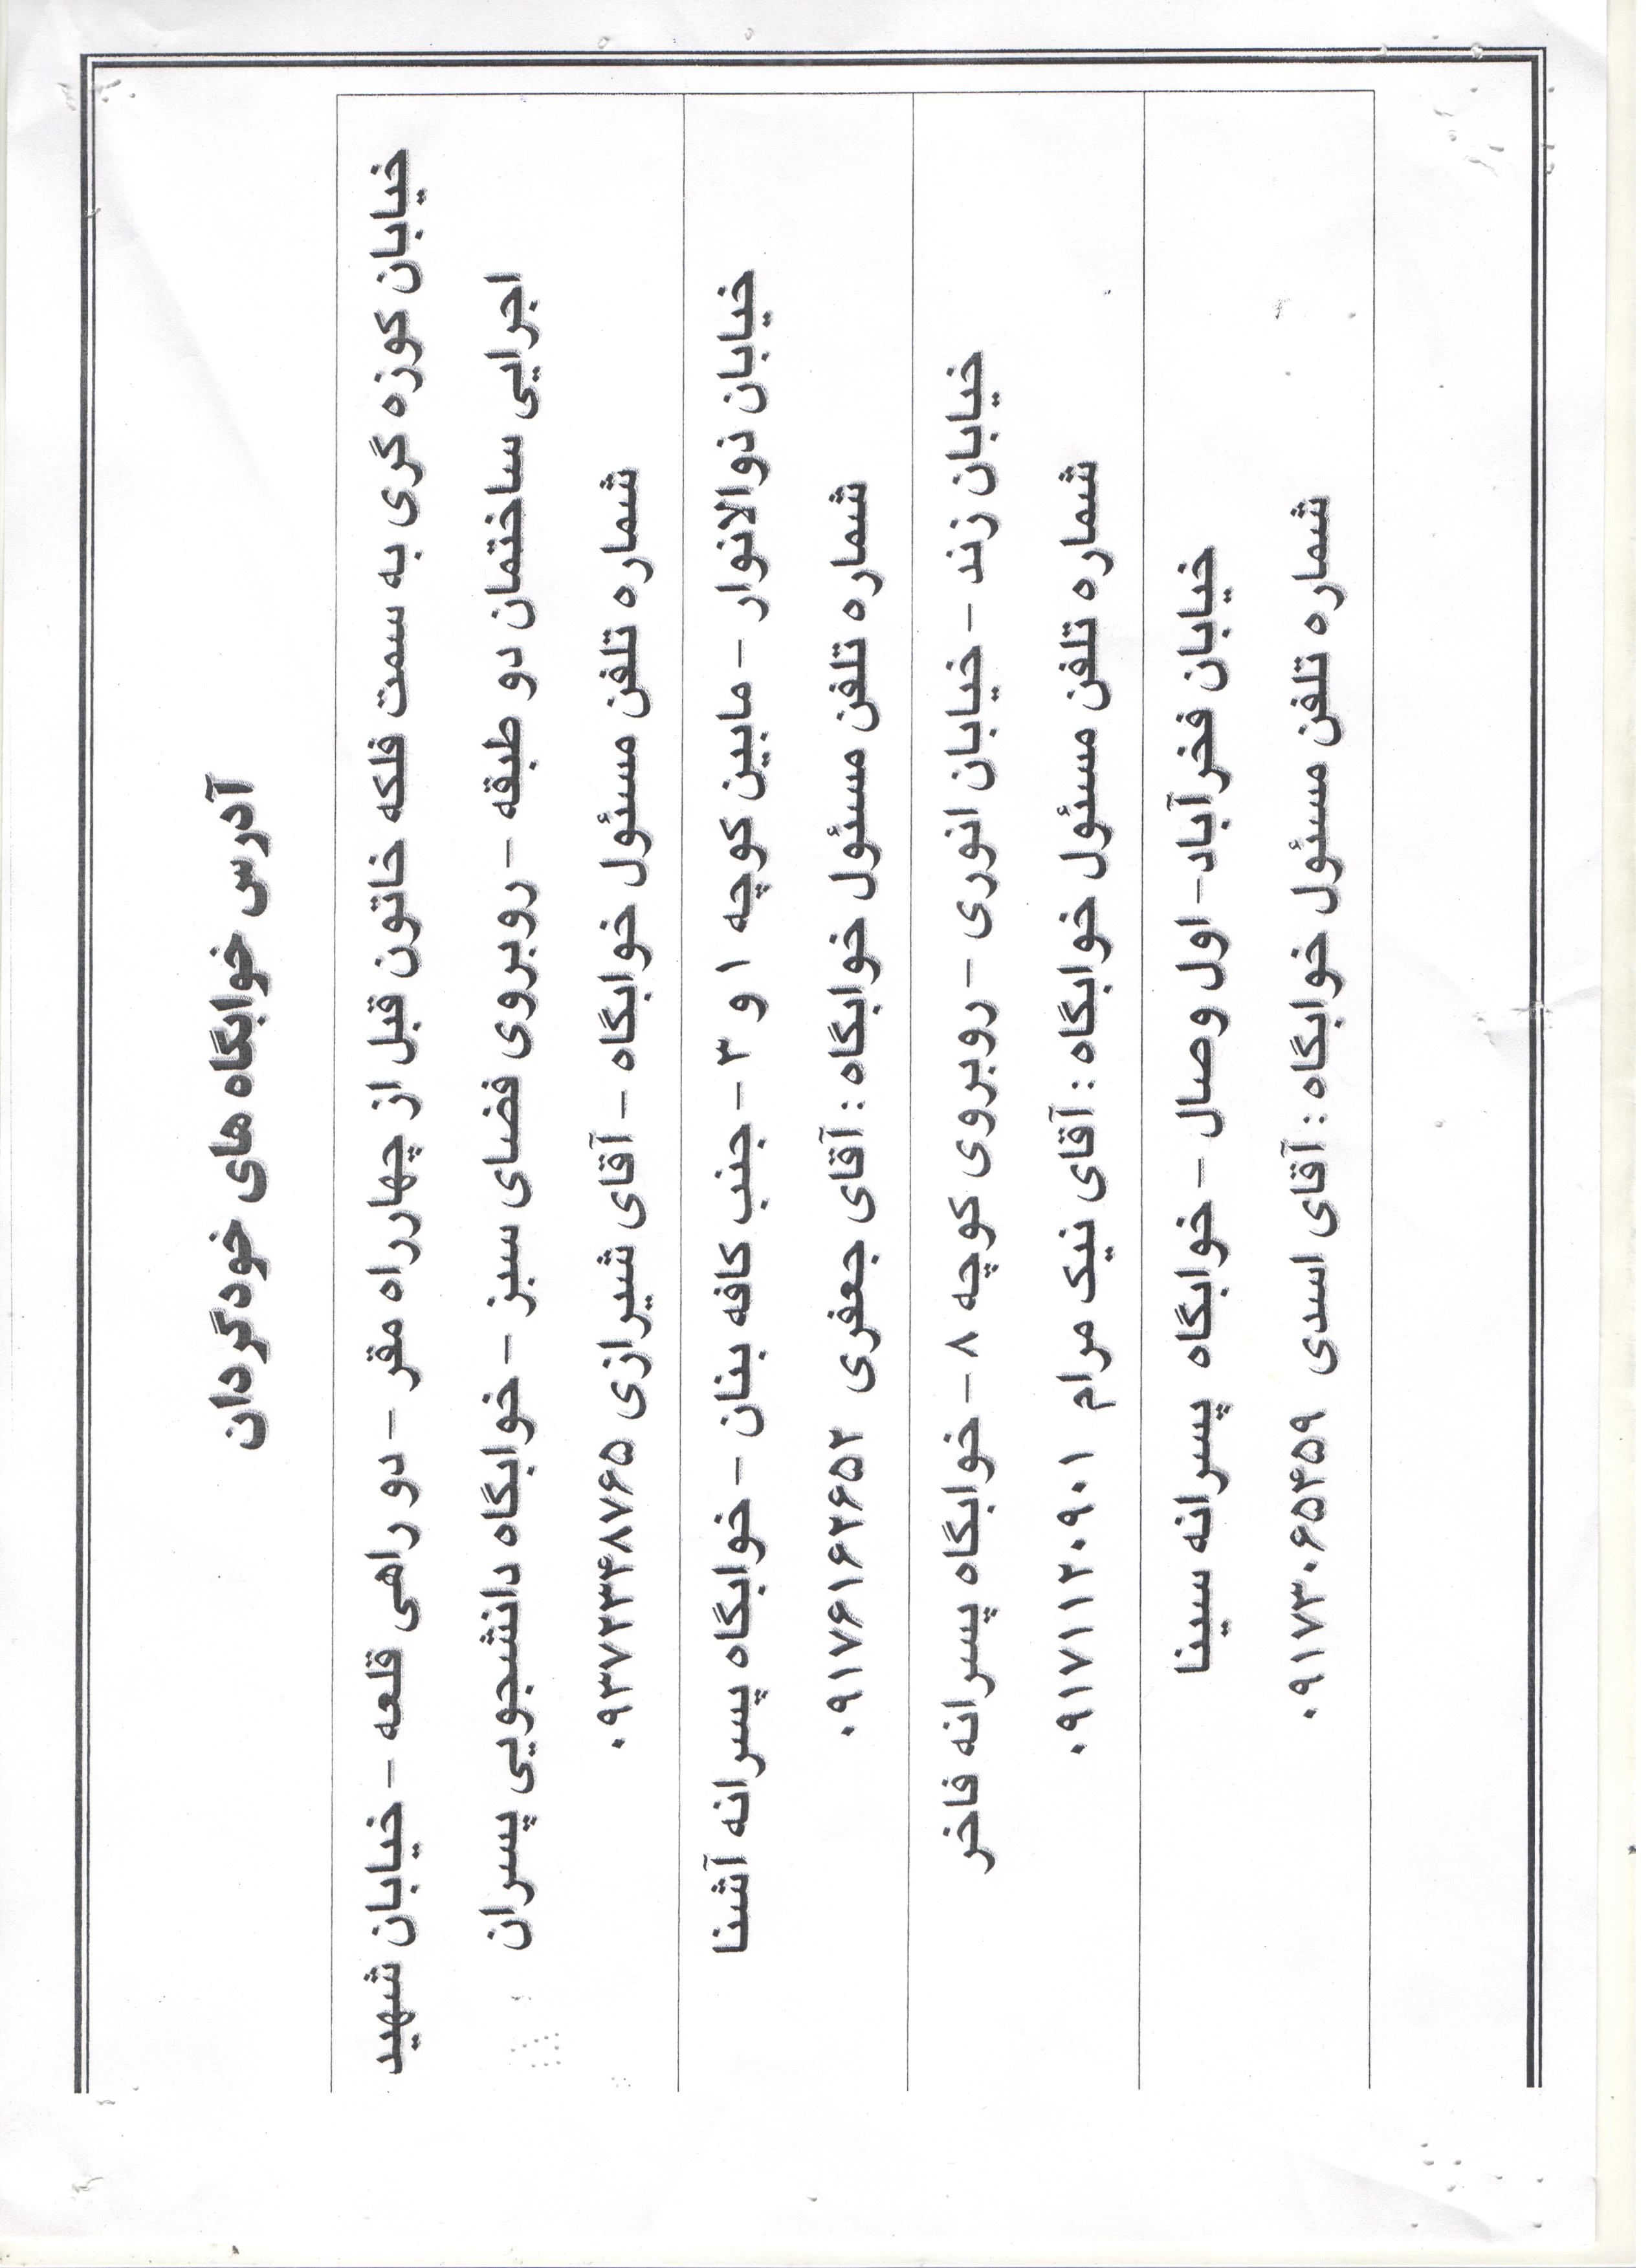 آدرس خوابگاه های خودگردان
خیابان کوزه گری به سمت فلکه خاتون قبل از چهارراه مقر - دو راهی قلعه - خیابان شهید
اجرایی ساختمان دو طبقه - روبروی فضای سبز - خوابگاه دانشجویی پسران
شماره تلفن مسئول خوابگاه - آقای شیرازی ۰۹۳۷۲۳۴۸۷۶۵
خیابان نوالانوار - مابین کوچه ۱ و ۳ - جنب کافه بنان - خوابگاه پسرانه آشنا
شماره تلفن مسئول خوابگاه : آقای جعفری ۰۹۱۷۶۱۶۲۶۵۲
خیابان زند - خیابان انوری - روبروی کوچه ۸ - خوابگاه پسرانه فاخر
شماره تلفن مسئول خوابگاه : آقای نیک مرام ۰۹۱۷۱۱۲۰۹۰۱
خیابان فخرآباد- اول وصال - خوابگاه پسرانه سینا
شماره تلفن مسئول خوابگاه : آقای اسدی ۰۹۱۷۳۰۶۵۴۵۹